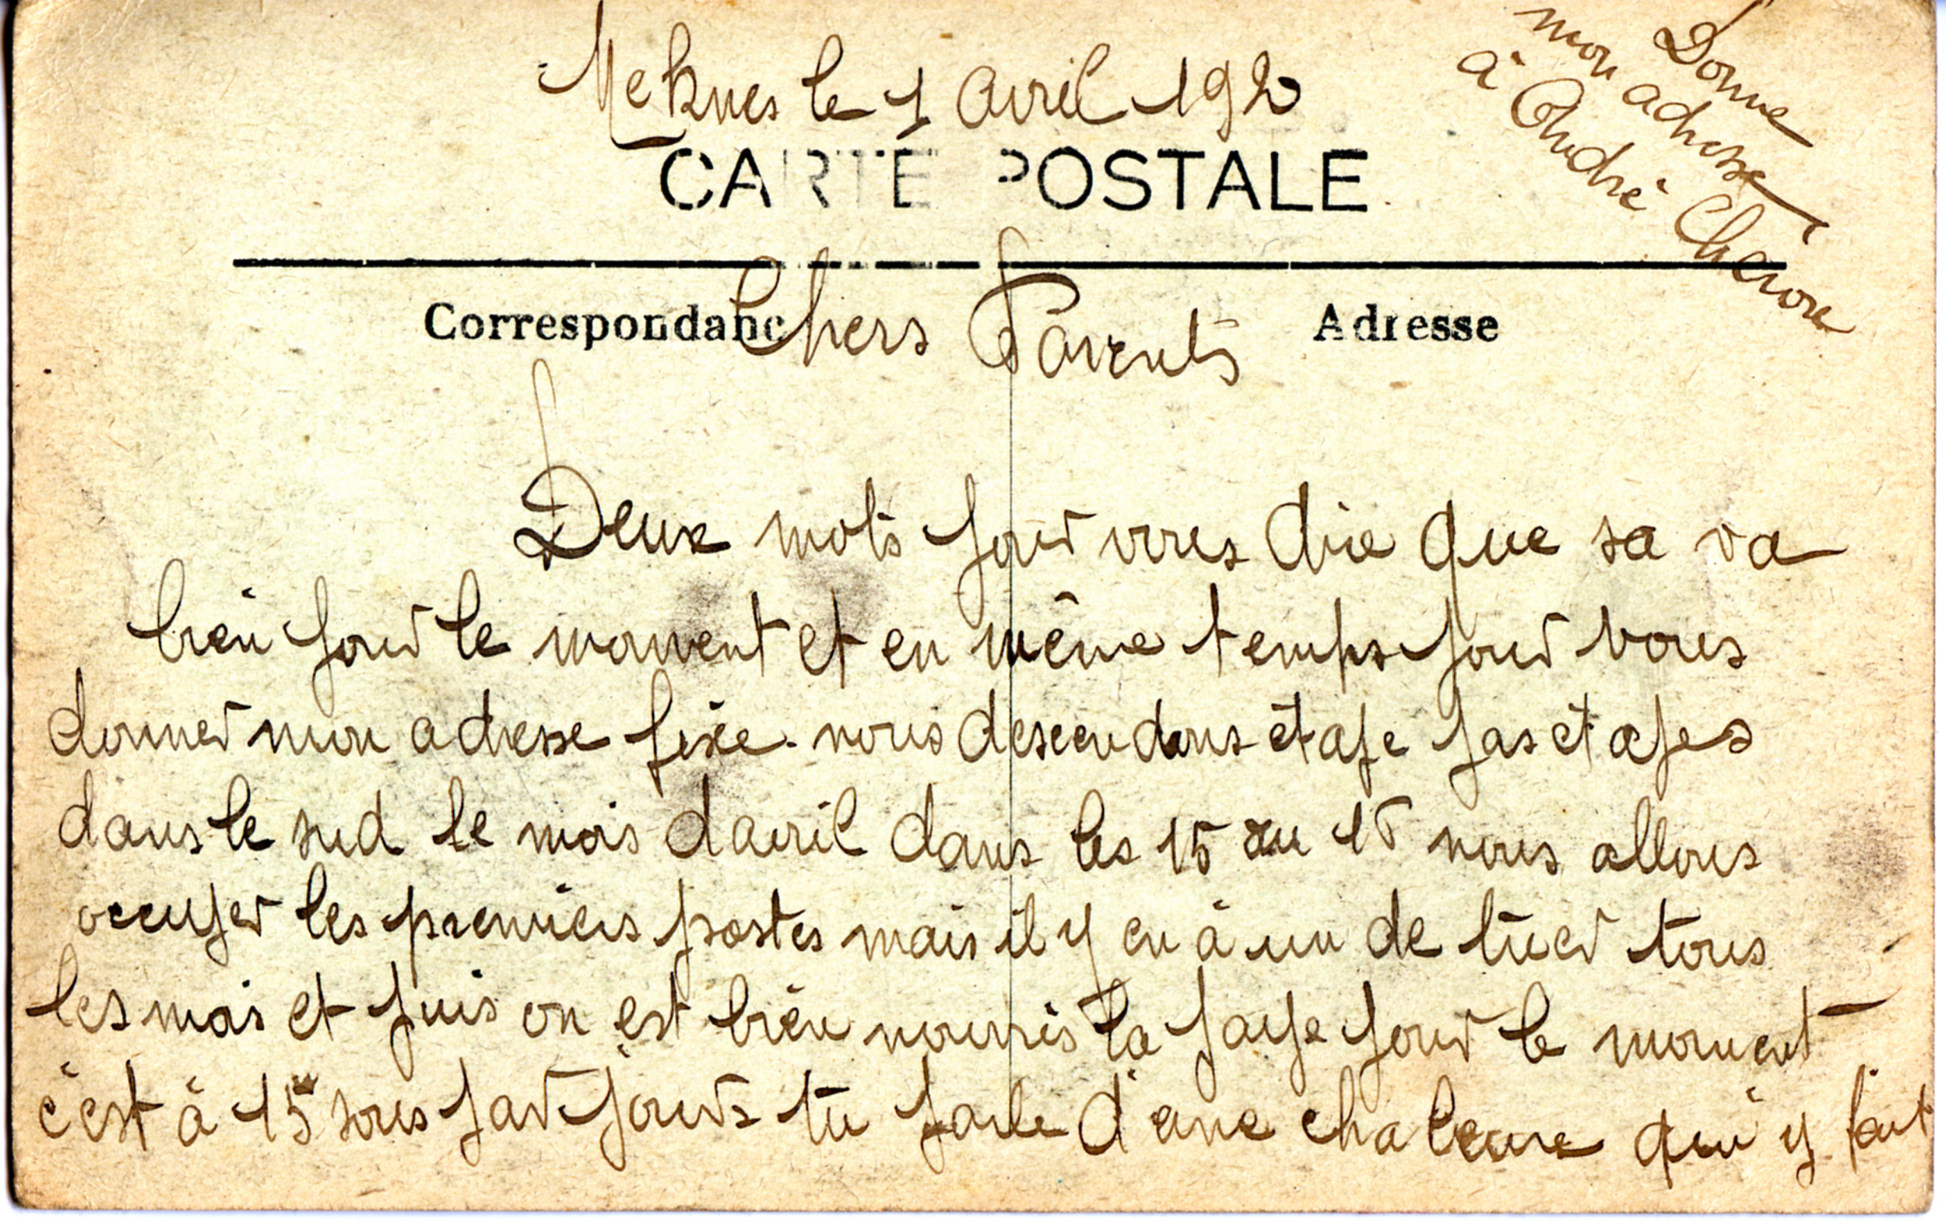 Meknes le 1 Avril 192
Donne
mon adresse
à André Cherone
CARTE POSTALE
Correspondanc
Adresse
Chers Parents
Deux mots pour vous dire que sa va
bien pour le moment et en même temps pour vous
donner mon adresse fixe. nous descendons étape par étapes
dans le sud le mois d'avril dans les 15 au nous allons
occuper les premiers postes mais il y en à un de tuer tous
les mois et puis on est bien nourris la paye pour le moment
c'est à 15 sous par jours tu parle d'une chaleure qui y fait